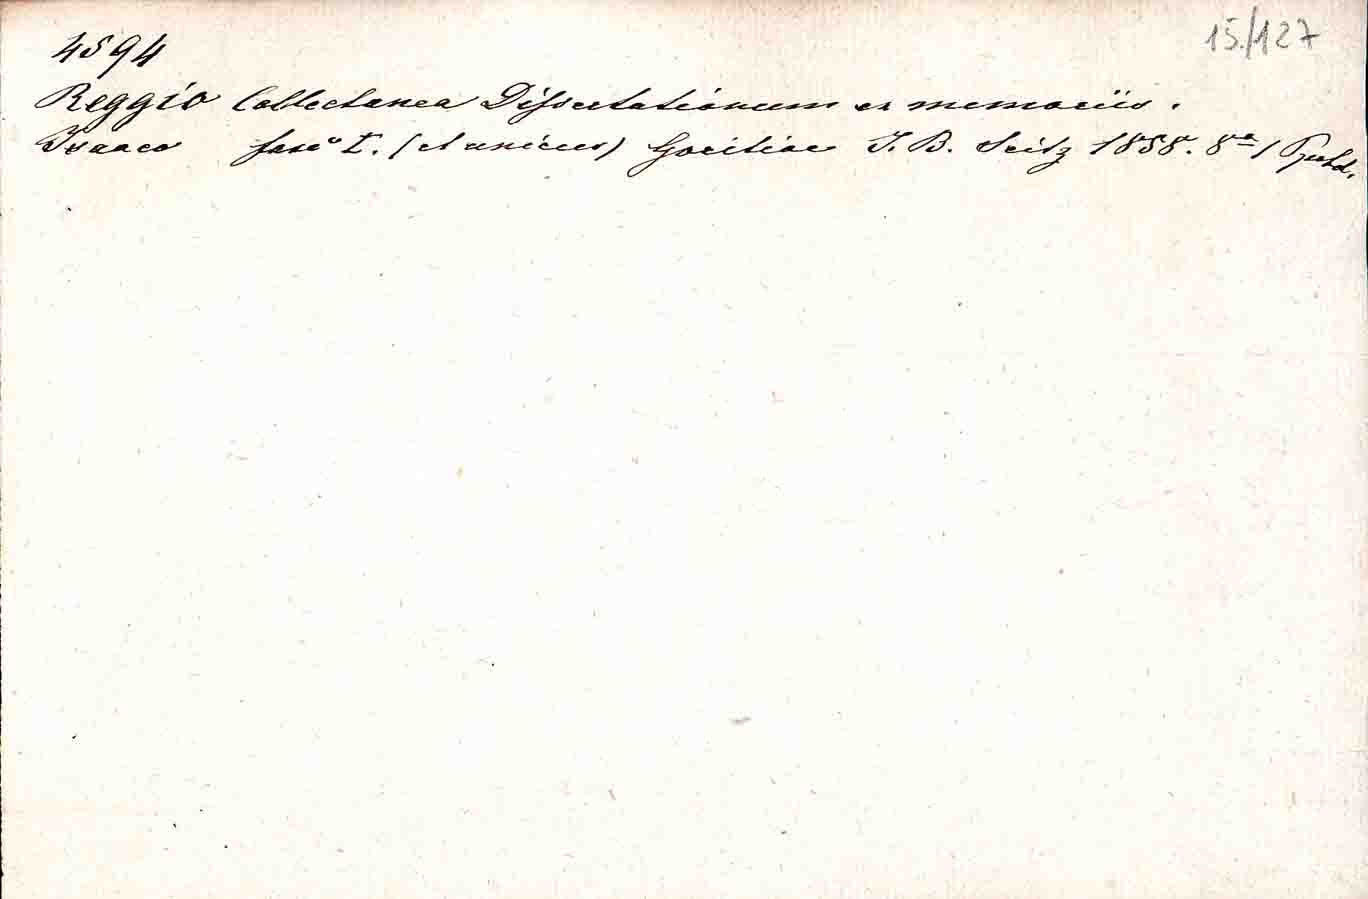 15./127
4594
Reggio Collectanea Dissertationum ex memoriis.
Isacco fasc° I. (et unicus) Goritiae J. B. Seitz 1858. 8°/